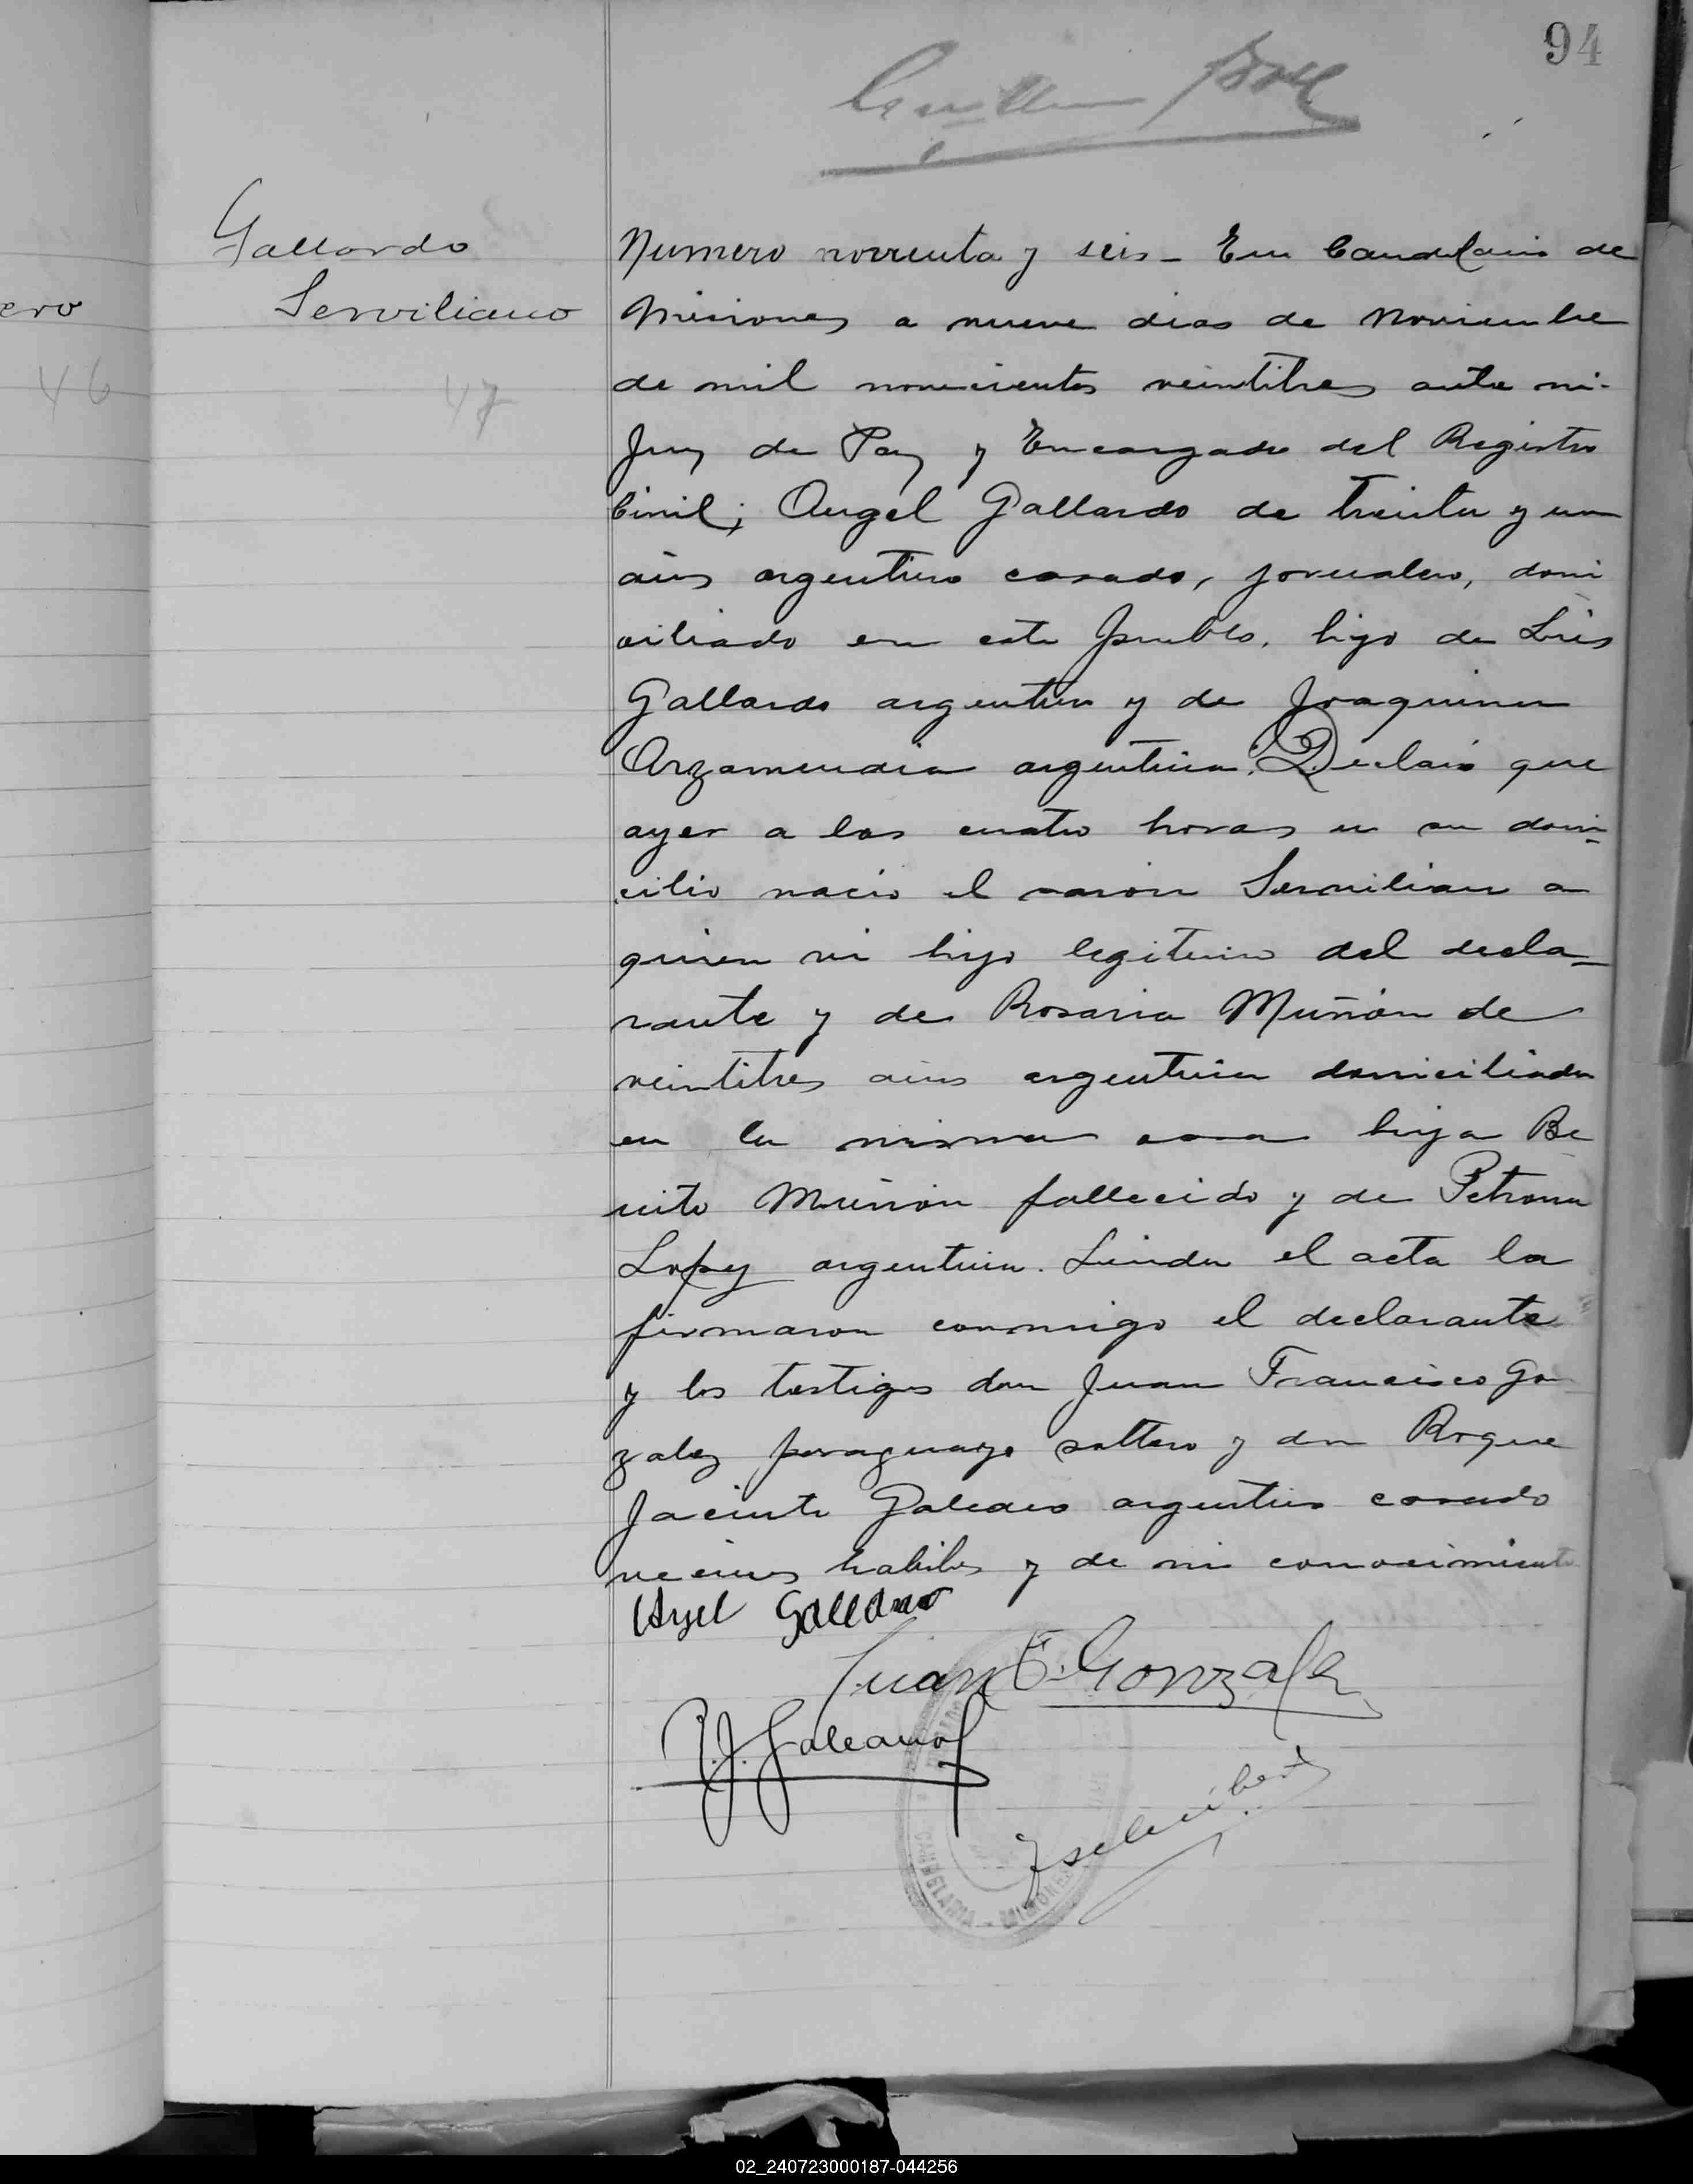 94
Gallardo
Serviliano
47
ero
46
Numero noventa y seis - En Candelaria de
Misiones a nueve dias de Noviembre
de mil novecientos veintitres ante mi
Juez de Paz y Encargado del Registro
Civil; Angel Gallardo de treinta y un
años argentino casado, jornalero, domi
ciliado en este pueblo, hijo de Luis
Gallardo argentino y de Joaquina
Arzamendia argentina. Declaró que
ayer a las cuatro horas en su domi-
cilio nació el varon Serviliano a
quien vi hijo legitimo del decla-
rante y de Rosaria Muñon de
veintitres años argentina domiciliada
en la misma casa hija Be
nito Muñon fallecido y de Petrona
Lopez argentina. Leida el acta la
firmaron conmigo el declarante
y los testigos don Juan Francisco Gon
zalez paraguayo soltero y don Roque
Jacinto Galeano argentino casado
vecinos habiles y de mi conocimiento
Angel Gallardo
Juan F. Gonzalez
R.J. Galeano
CANDELARIA - MISIONES
02_240723000187-044256